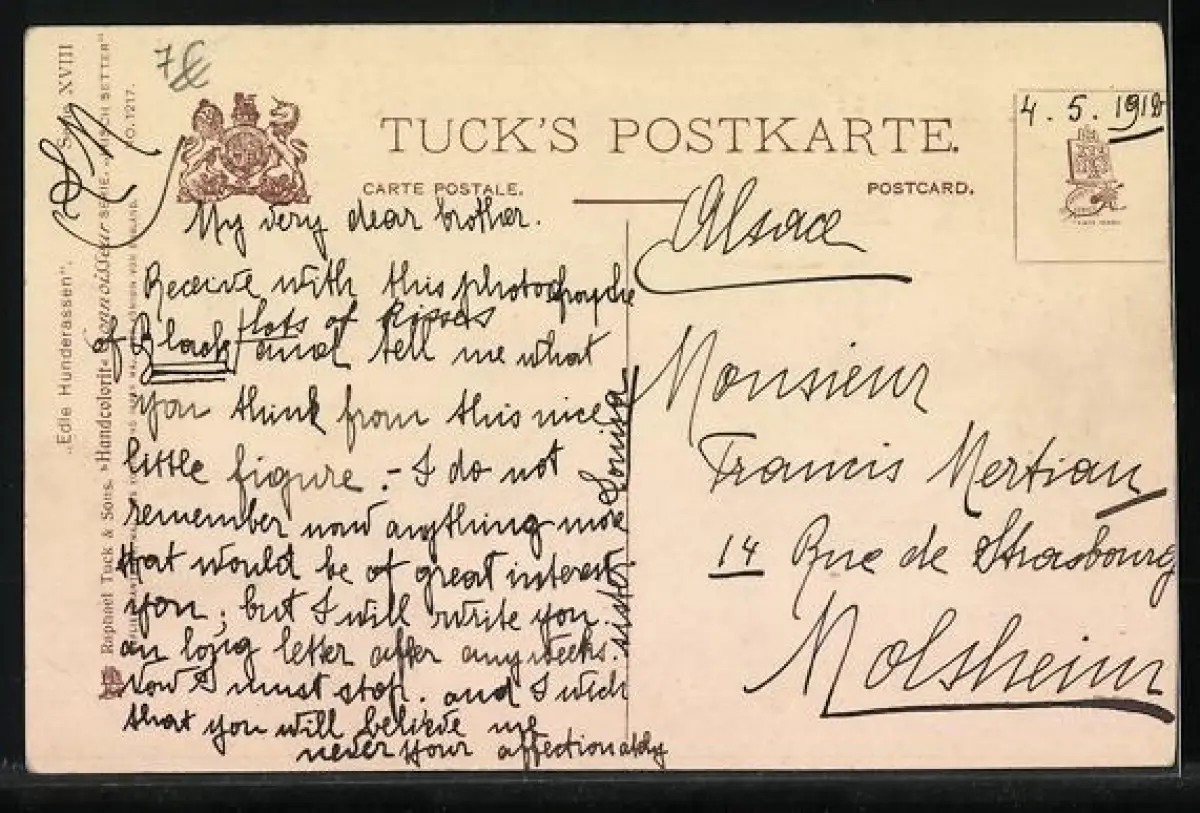 7€
TUCK'S POSTKARTE.
CARTE POSTALE. POSTCARD.
4. 5. 1912
My very dear brother.
Receive with this photographie
lots of kisses
of Black and tell me what
you think from this nice
little figure. - I do not
remember now anything more
that would be of great interest
you; but I will write you.
an long letter after any weeks.
now I must stop. and I wich
that you will believe me
never your affectionately
sister Louisa
Alsace
Monsieur
Francis Mertian
14 Rue de Strasbourg
Molsheim
„Edle Hunderassen". Serie XVIII
Raphael Tuck & Sons, »Handcolorit« Connoisseur SERIE. SETTER"
NO. 1217.